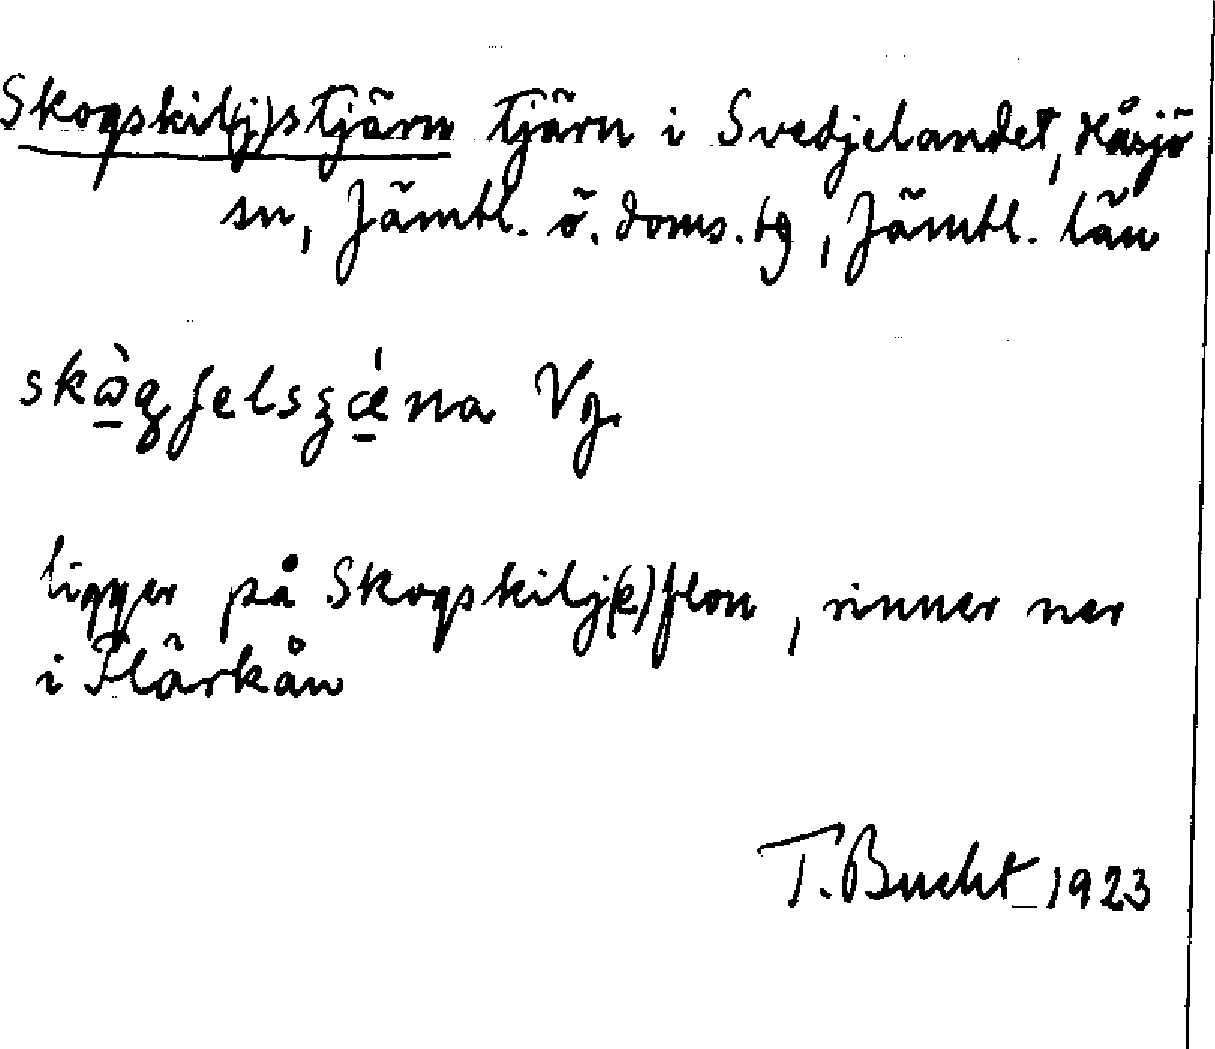 Skogskil(j)stjärn tjärn i Svedjelandet, Håsjö
sn, Jämtl. ö. doms. tg, Jämtl. län
Vg.
ligger på Skogskilj(e)flon, rinner ner
i Flärkån
T. Bucht 1923